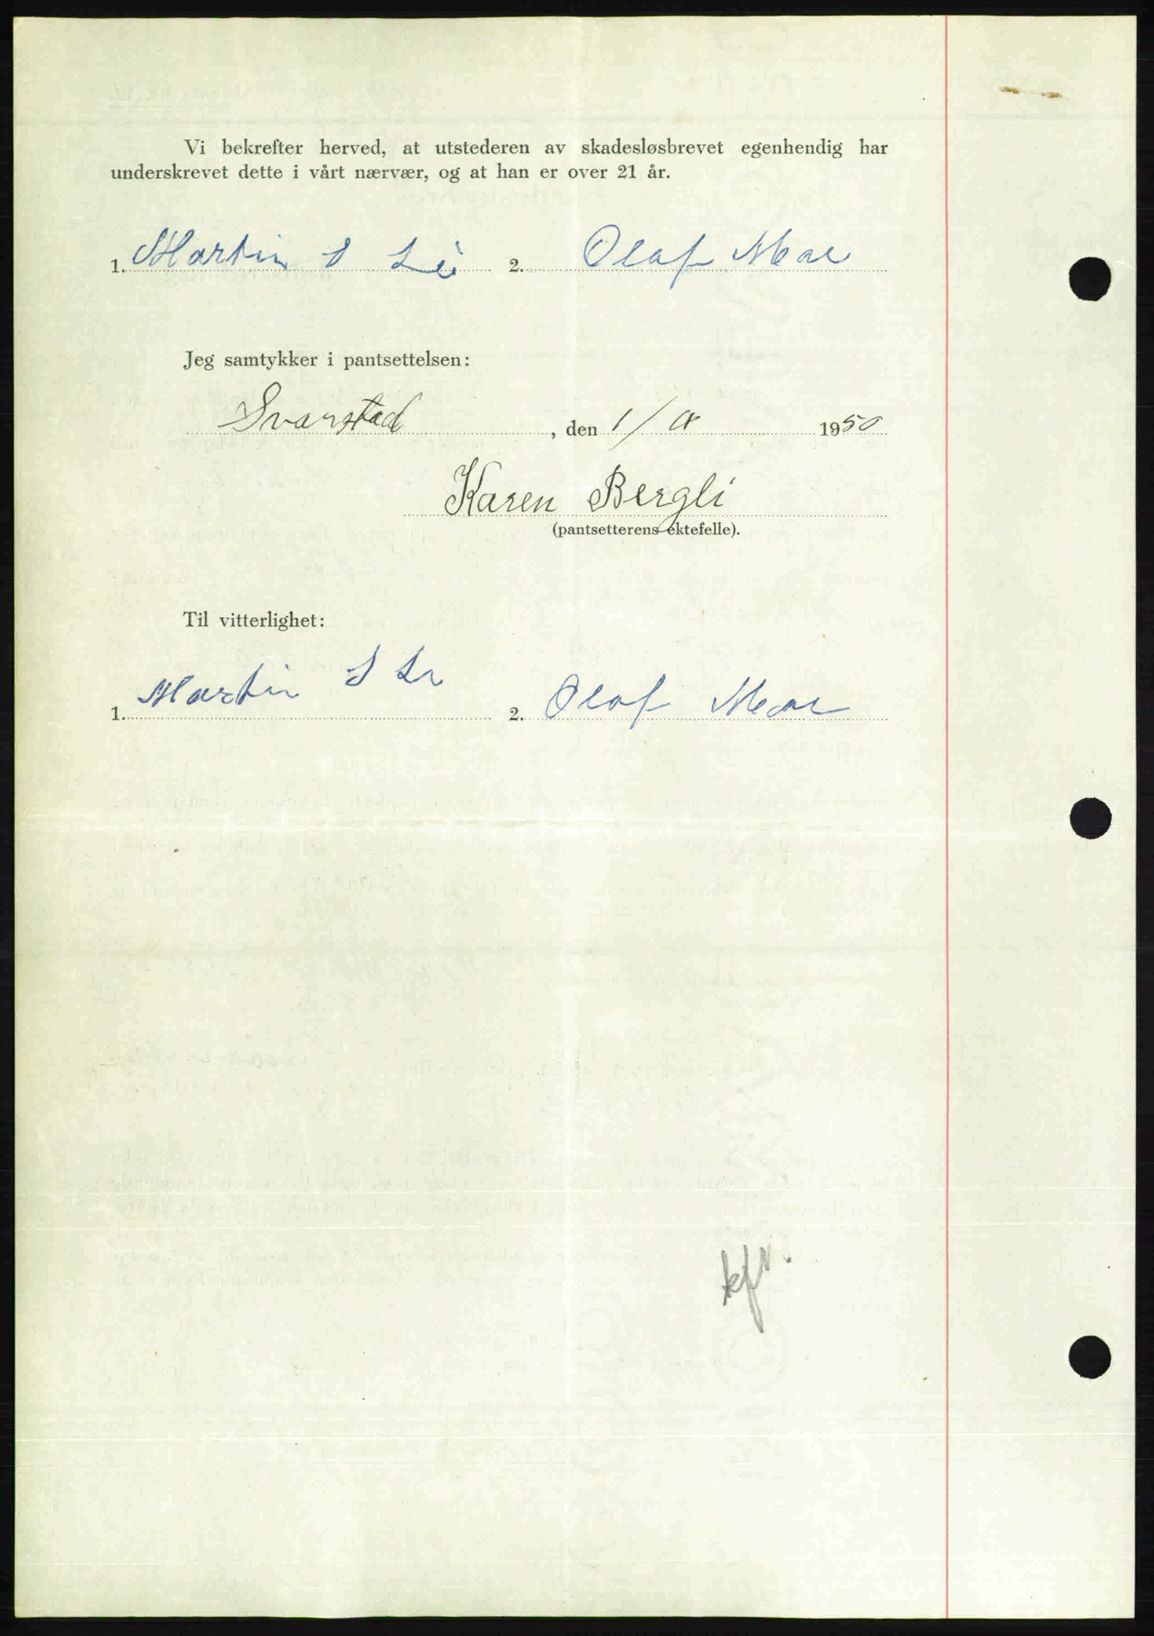 Vi bekrefter herved, at utstederen av skadesløsbrevet egenhendig har
underskrevet dette i vårt nærvær, og at han er over 21 år.
1. Martin S Lie 2. Olaf Moe
Jeg samtykker i pantsettelsen:
Svarstad, den 1/ 1950
Karen Bergli
(pantsetterens ektefelle).
Til vitterlighet:
1. Martin S Lie 2. Olaf Moe
kfr.